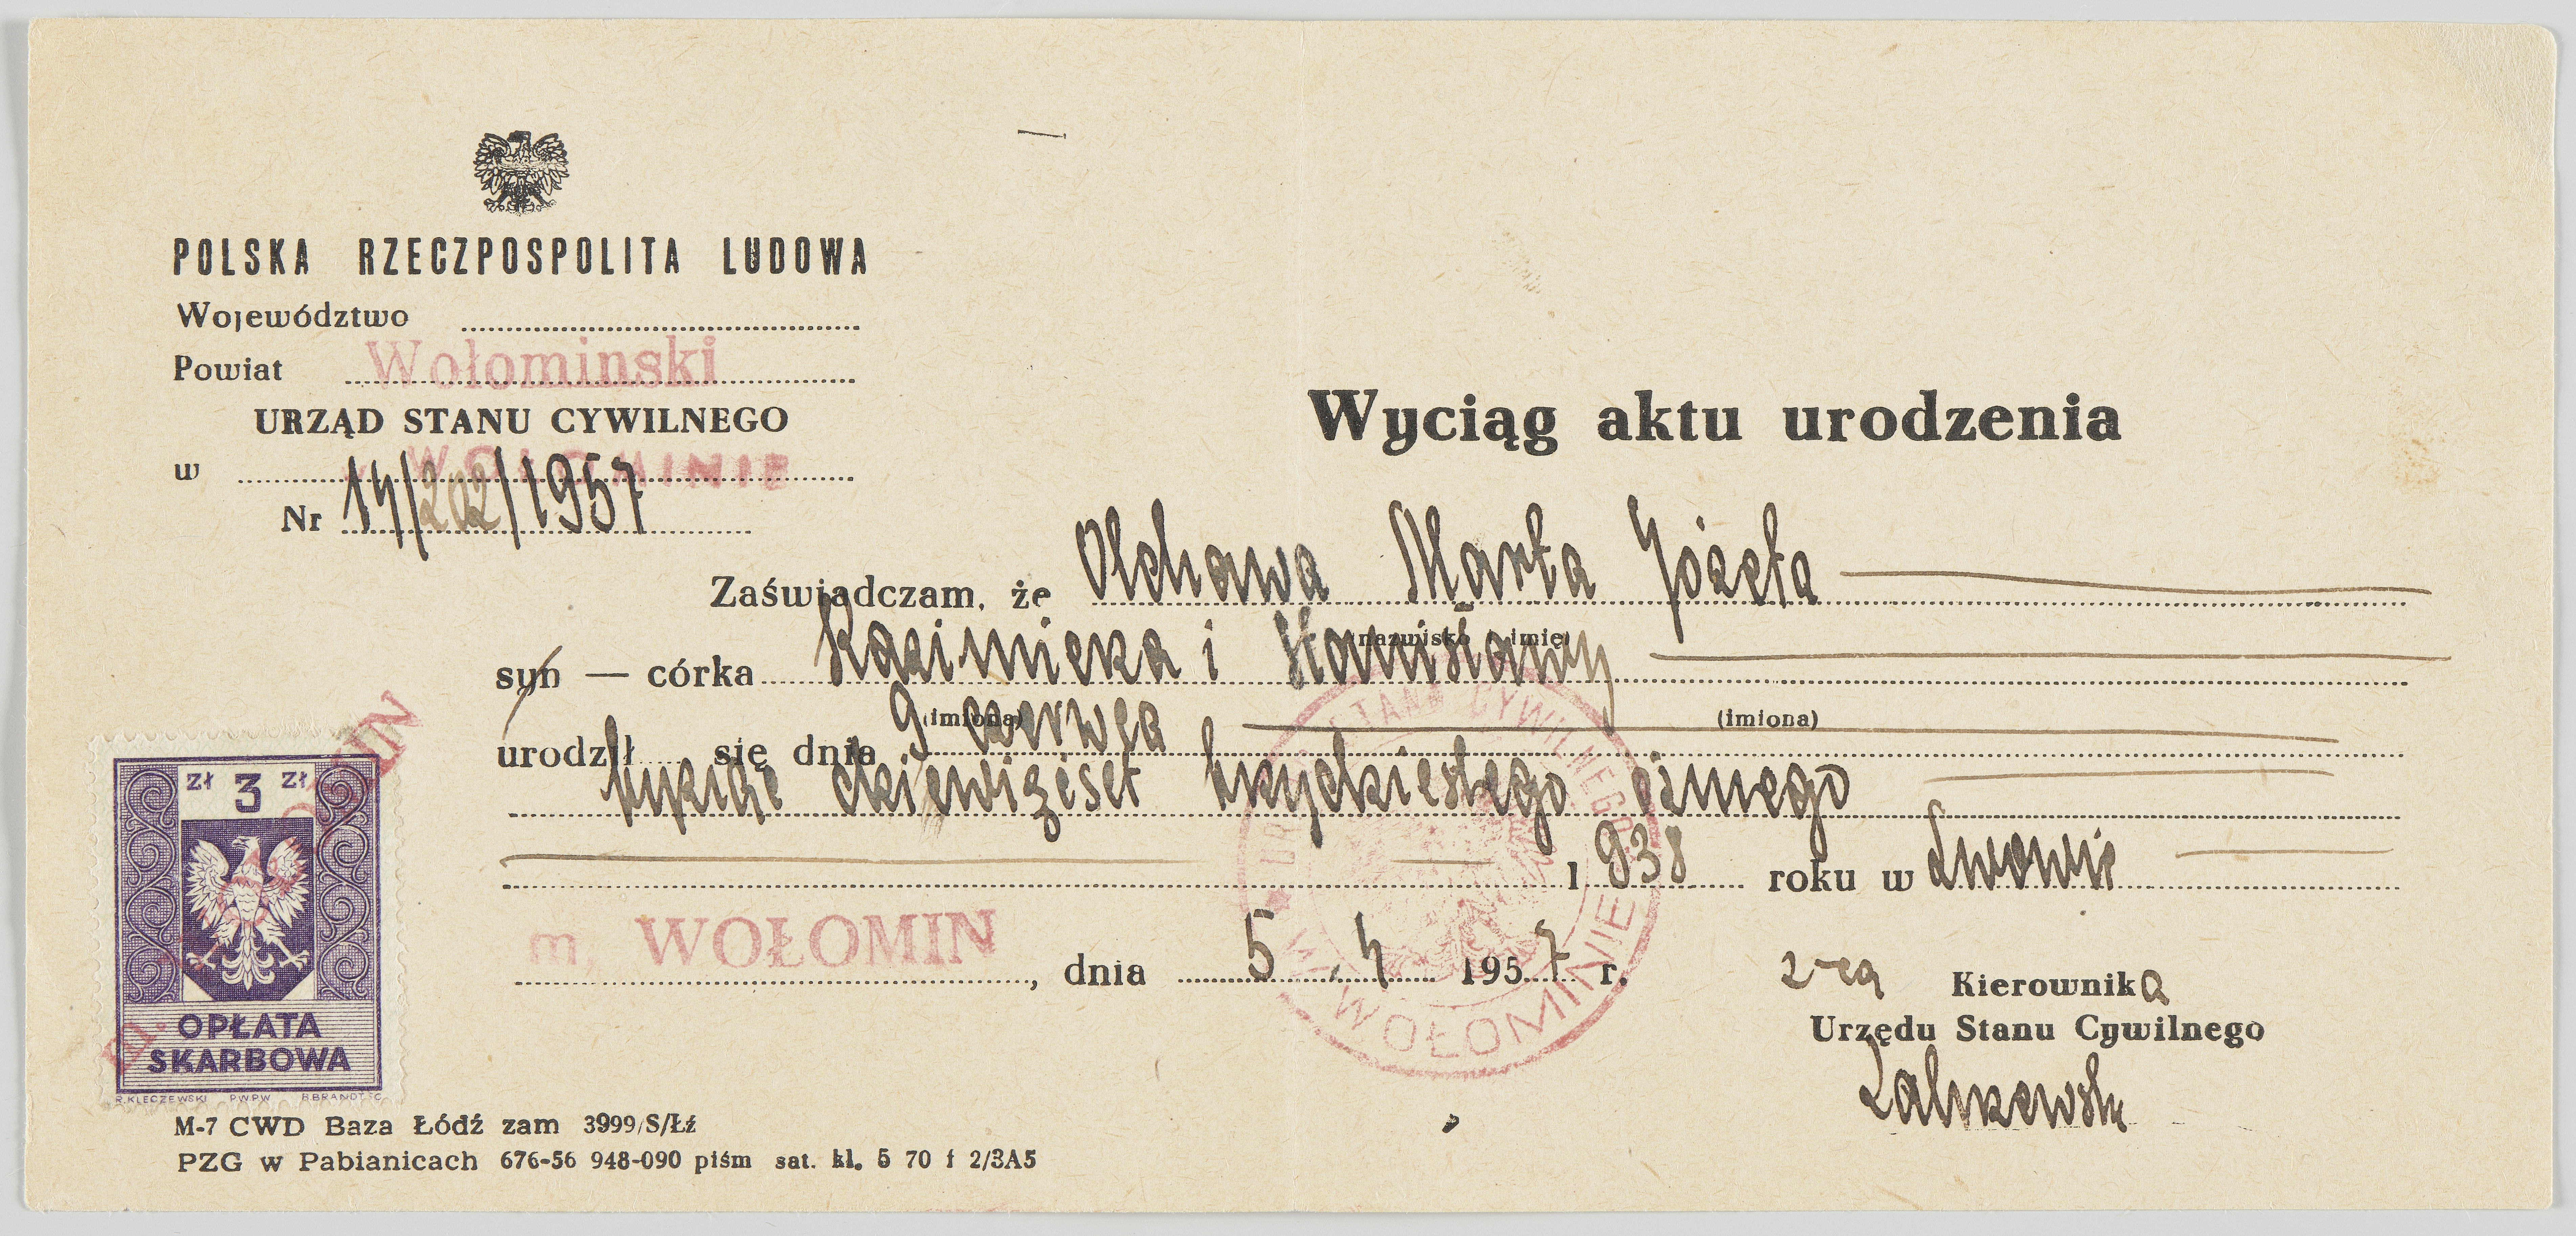 POLSKA RZECZPOSPOLITA LUDOWA
Województwo
Powiat Wołominski
URZĄD STANU CYWILNEGO
w WOŁOMINIE
Nr 14/202/1957
Wyciąg aktu urodzenia
Zaświadczam, że Olchowa Marta Józefa
(nazwisko i imię)
syn — córka Kazimierza i Stanisławy
(imiona) (imiona)
urodził się dnia 9 czerwca
tysiąc dziewięćset trzydziestego ósmego
1938 roku w Lwowie
m. WOŁOMIN, dnia 5.4 1957 r.
z-ca Kierownika
Urzędu Stanu Cywilnego
URZĄD STANU CYWILNEGO
W WOŁOMINIE
zł 3 zł
OPŁATA
SKARBOWA
R.KLECZEWSKI PWPW B.BRANDT SC
m. WOŁOMIN
M-7 CWD Baza Łódź zam 3999/S/Łź
PZG w Pabianicach 676-56 948-090 piśm sat. kl. 5 70 f 2/3A5